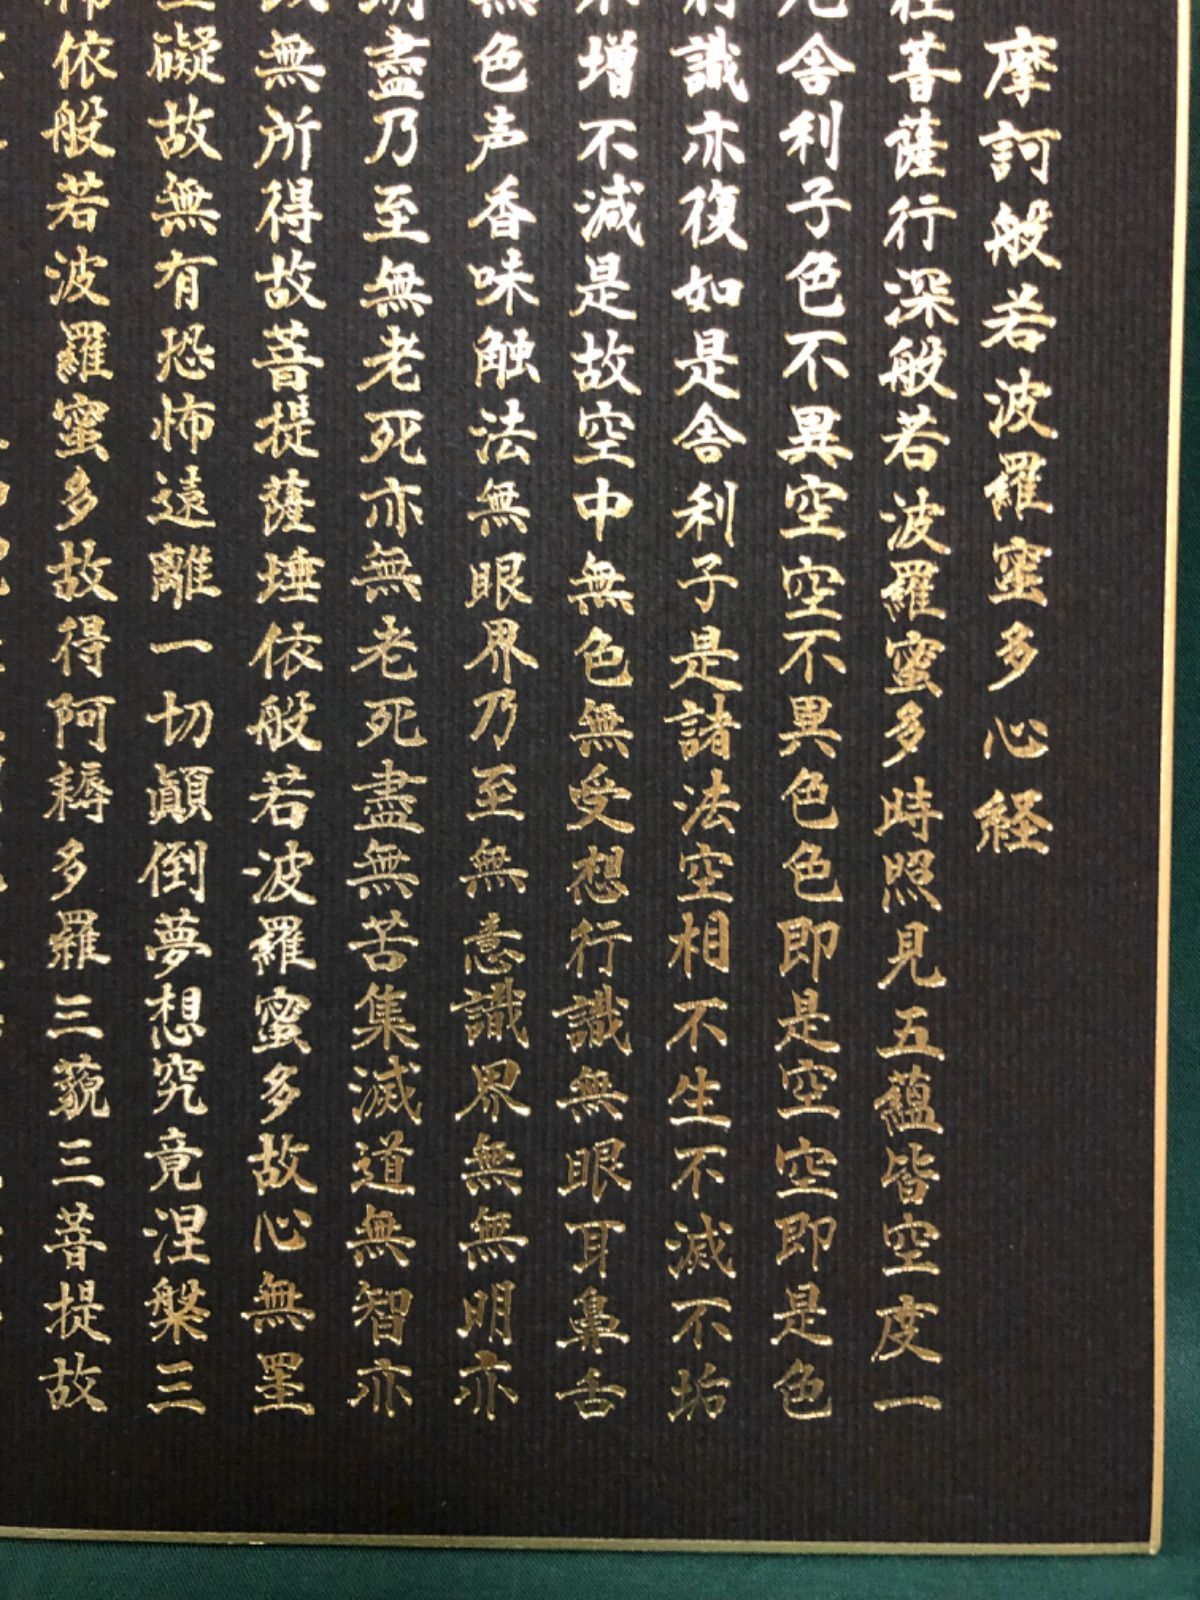 摩訶般若波羅蜜多心経
在菩薩行深般若波羅蜜多時照見五蘊皆空度一
厄舎利子色不異空空不異色色即是空空即是色
行識亦復如是舎利子是諸法空相不生不滅不垢
不増不減是故空中無色無受想行識無眼耳鼻舌
無色声香味触法無眼界乃至無意識界無無明亦
明盡乃至無老死亦無老死盡無苦集滅道無智亦
以無所得故菩提薩埵依般若波羅蜜多故心無罣
罣礙故無有恐怖遠離一切顛倒夢想究竟涅槃三
佛依般若波羅蜜多故得阿耨多羅三藐三菩提故